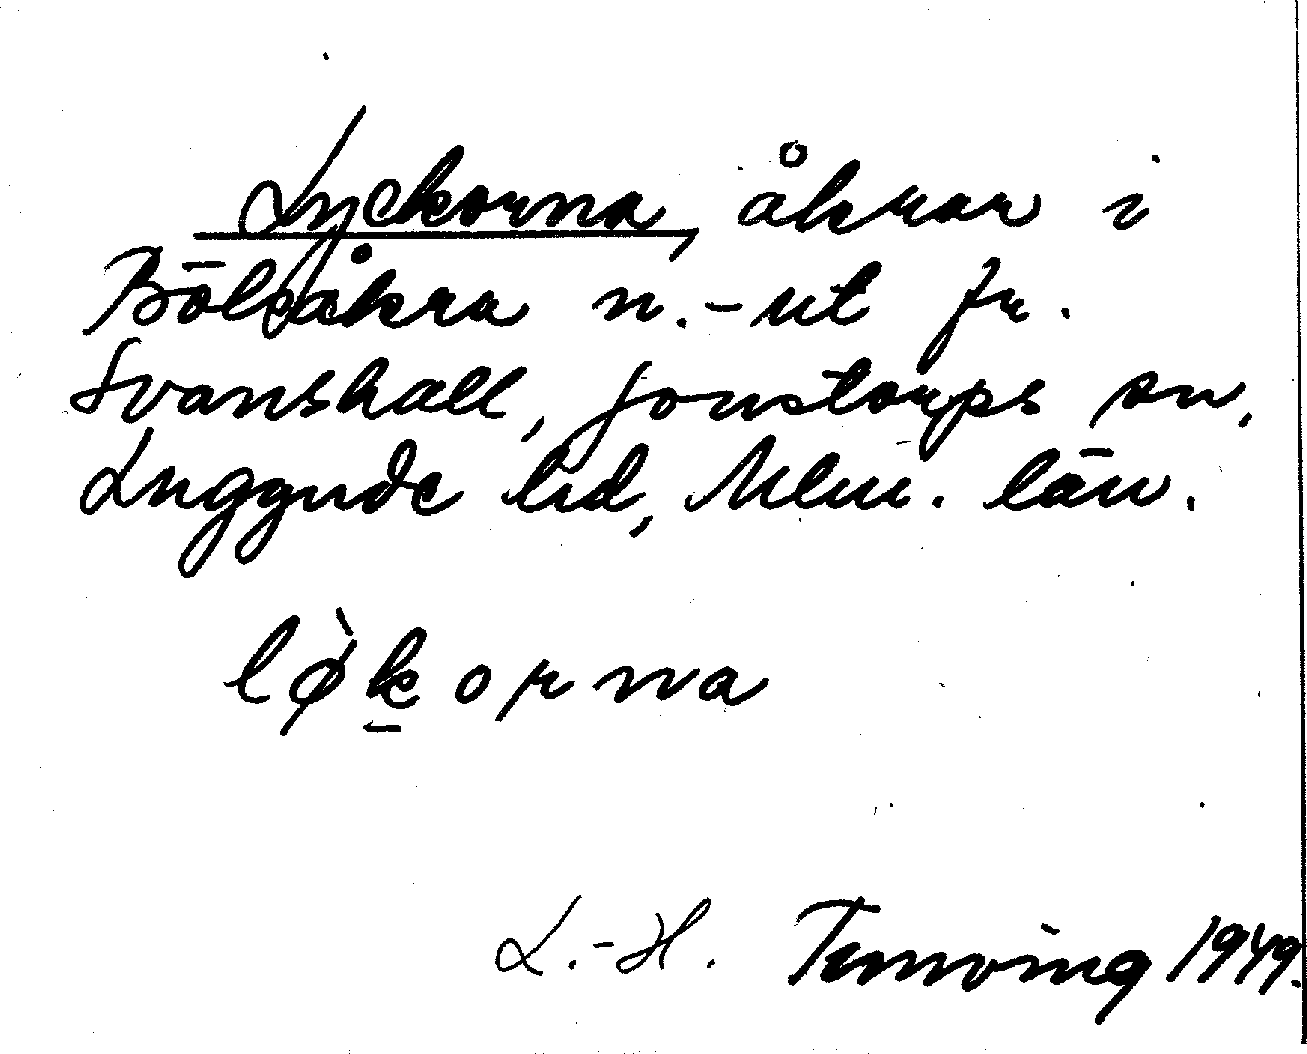 Lyckorna, åkrar i
Bölsåkra n. -ut fr.
Svanshall, Jonstorps sn,
Luggude hd, Mlm. län.
lø̀k̲orna
L.-H. Ternving 1949.